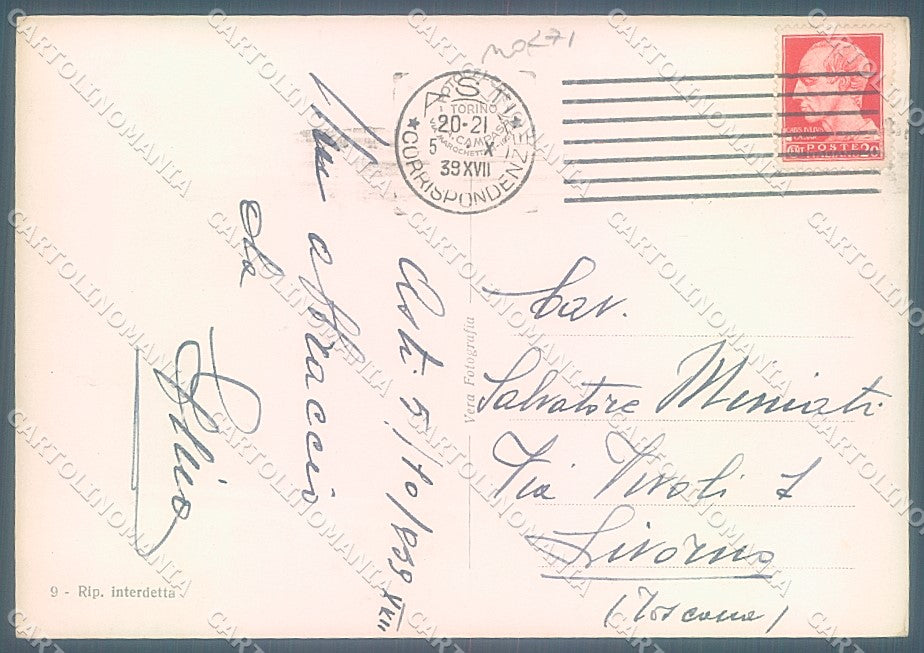 MOZ71
ASTI
20-21
5 X
39 XVII
CORRISPONDENZE
TORINO
POSTE
20
Un abbraccio
da
Asti 5/10/939 XVII
Vera Fotografia
Cav.
Salvatore Miniati
Via Tivoli 1
Livorno
(Toscana)
9 - Rip. interdetta
CARTOLINOMANIA